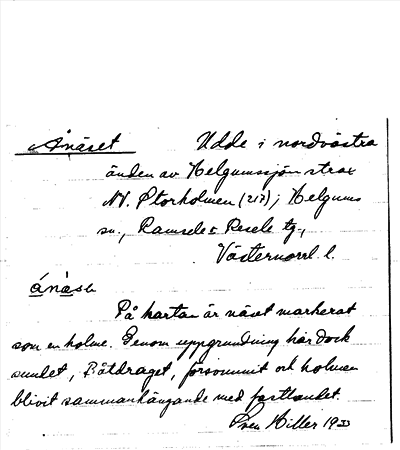 Ånäset Udde i nordvästra
änden av Helgumssjön strax
NV. Storholmen (217); Helgums
sn., Ramsele o Resele tg.,
Västernorrl. l.
ánàsə
På kartan är näset markerat
som en holme. Genom uppgrundning har dock
sundet, Båtdraget, försvunnit och holmen
blivit sammanhängande med fastlandet.
Sven Hiller 19